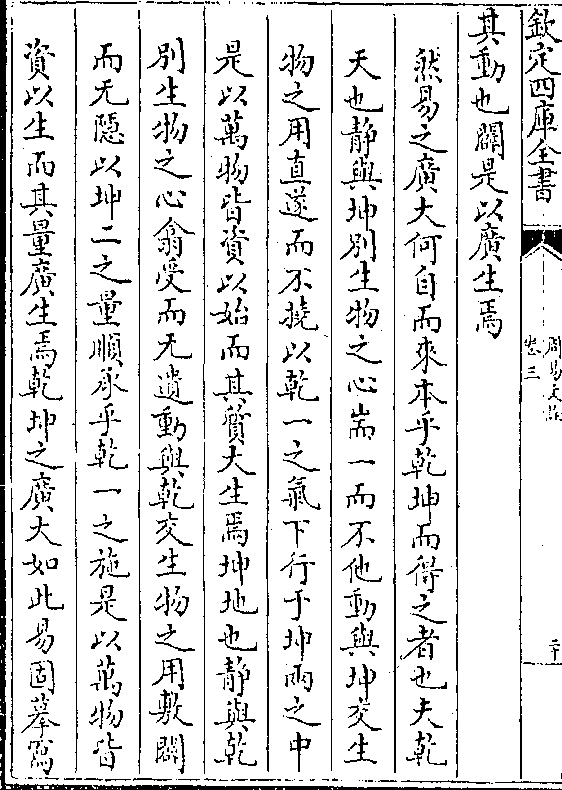 欽定四庫全書
周易文詮
卷三
二十
其動也闢是以廣生焉
然易之廣大何自而來本乎乾坤而得之者也夫乾
天也静與坤別生物之心耑一而不他動與坤交生
物之用直遂而不撓以乾一之氣下行于坤兩之中
是以萬物皆資以始而其質大生焉坤地也静與乾
別生物之心翕受而无遺動與乾交生物之用敷闢
而无隱以坤二之量順承乎乾一之施是以萬物皆
資以生而其量廣生焉乾坤之廣大如此易固摹寫